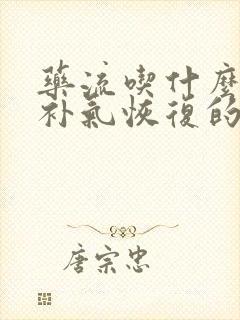 藥流喫什麼
补氣恢復的
唐宗忠